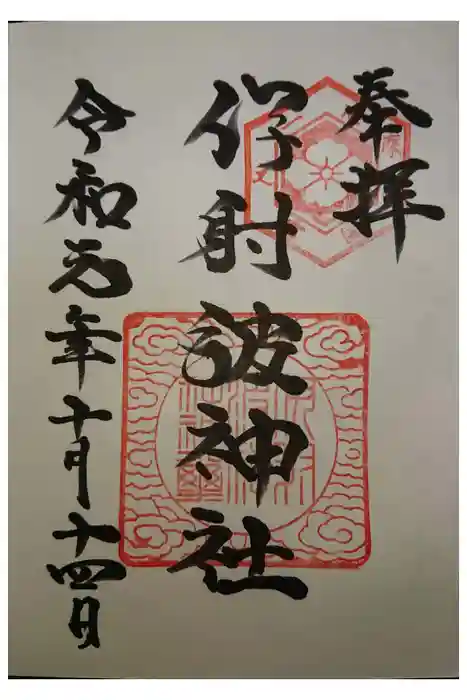 奉拝
伊射波神社
令和元年十月十四日